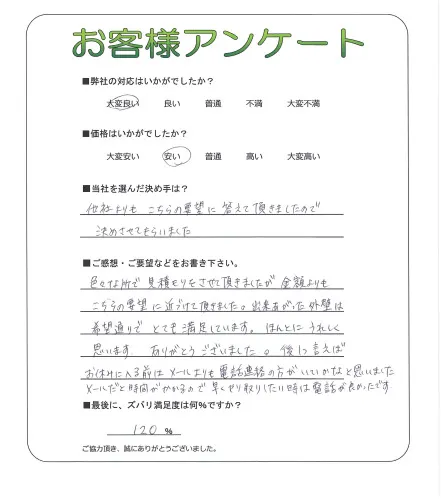 お客様アンケート
■弊社の対応はいかがでしたか?
大変良い 良い 普通 不満 大変不満
■価格はいかがでしたか?
大変安い 安い 普通 高い 大変高い
■当社を選んだ決め手は?
他社よりも こちらの要望に 答えて頂きましたので
決めさせてもらいました
■ご感想・ご要望などをお書き下さい。
色々な所で見積もりをさせて頂きましたが 金額よりも
こちらの要望に近づけて頂きました。出来あがった外壁は
希望通りで とても満足しています。 ほんとに うれしく
思います ありがとうございました。 後1つ言えば
お休みに入る前は メールよりも 電話連絡の方がいいかなと思いました
メールだと時間がかかるので 早くやり取りしたい時は電話が良かったです
■最後に、ズバリ満足度は何%ですか?
120 %
ご協力頂き、誠にありがとうございました。